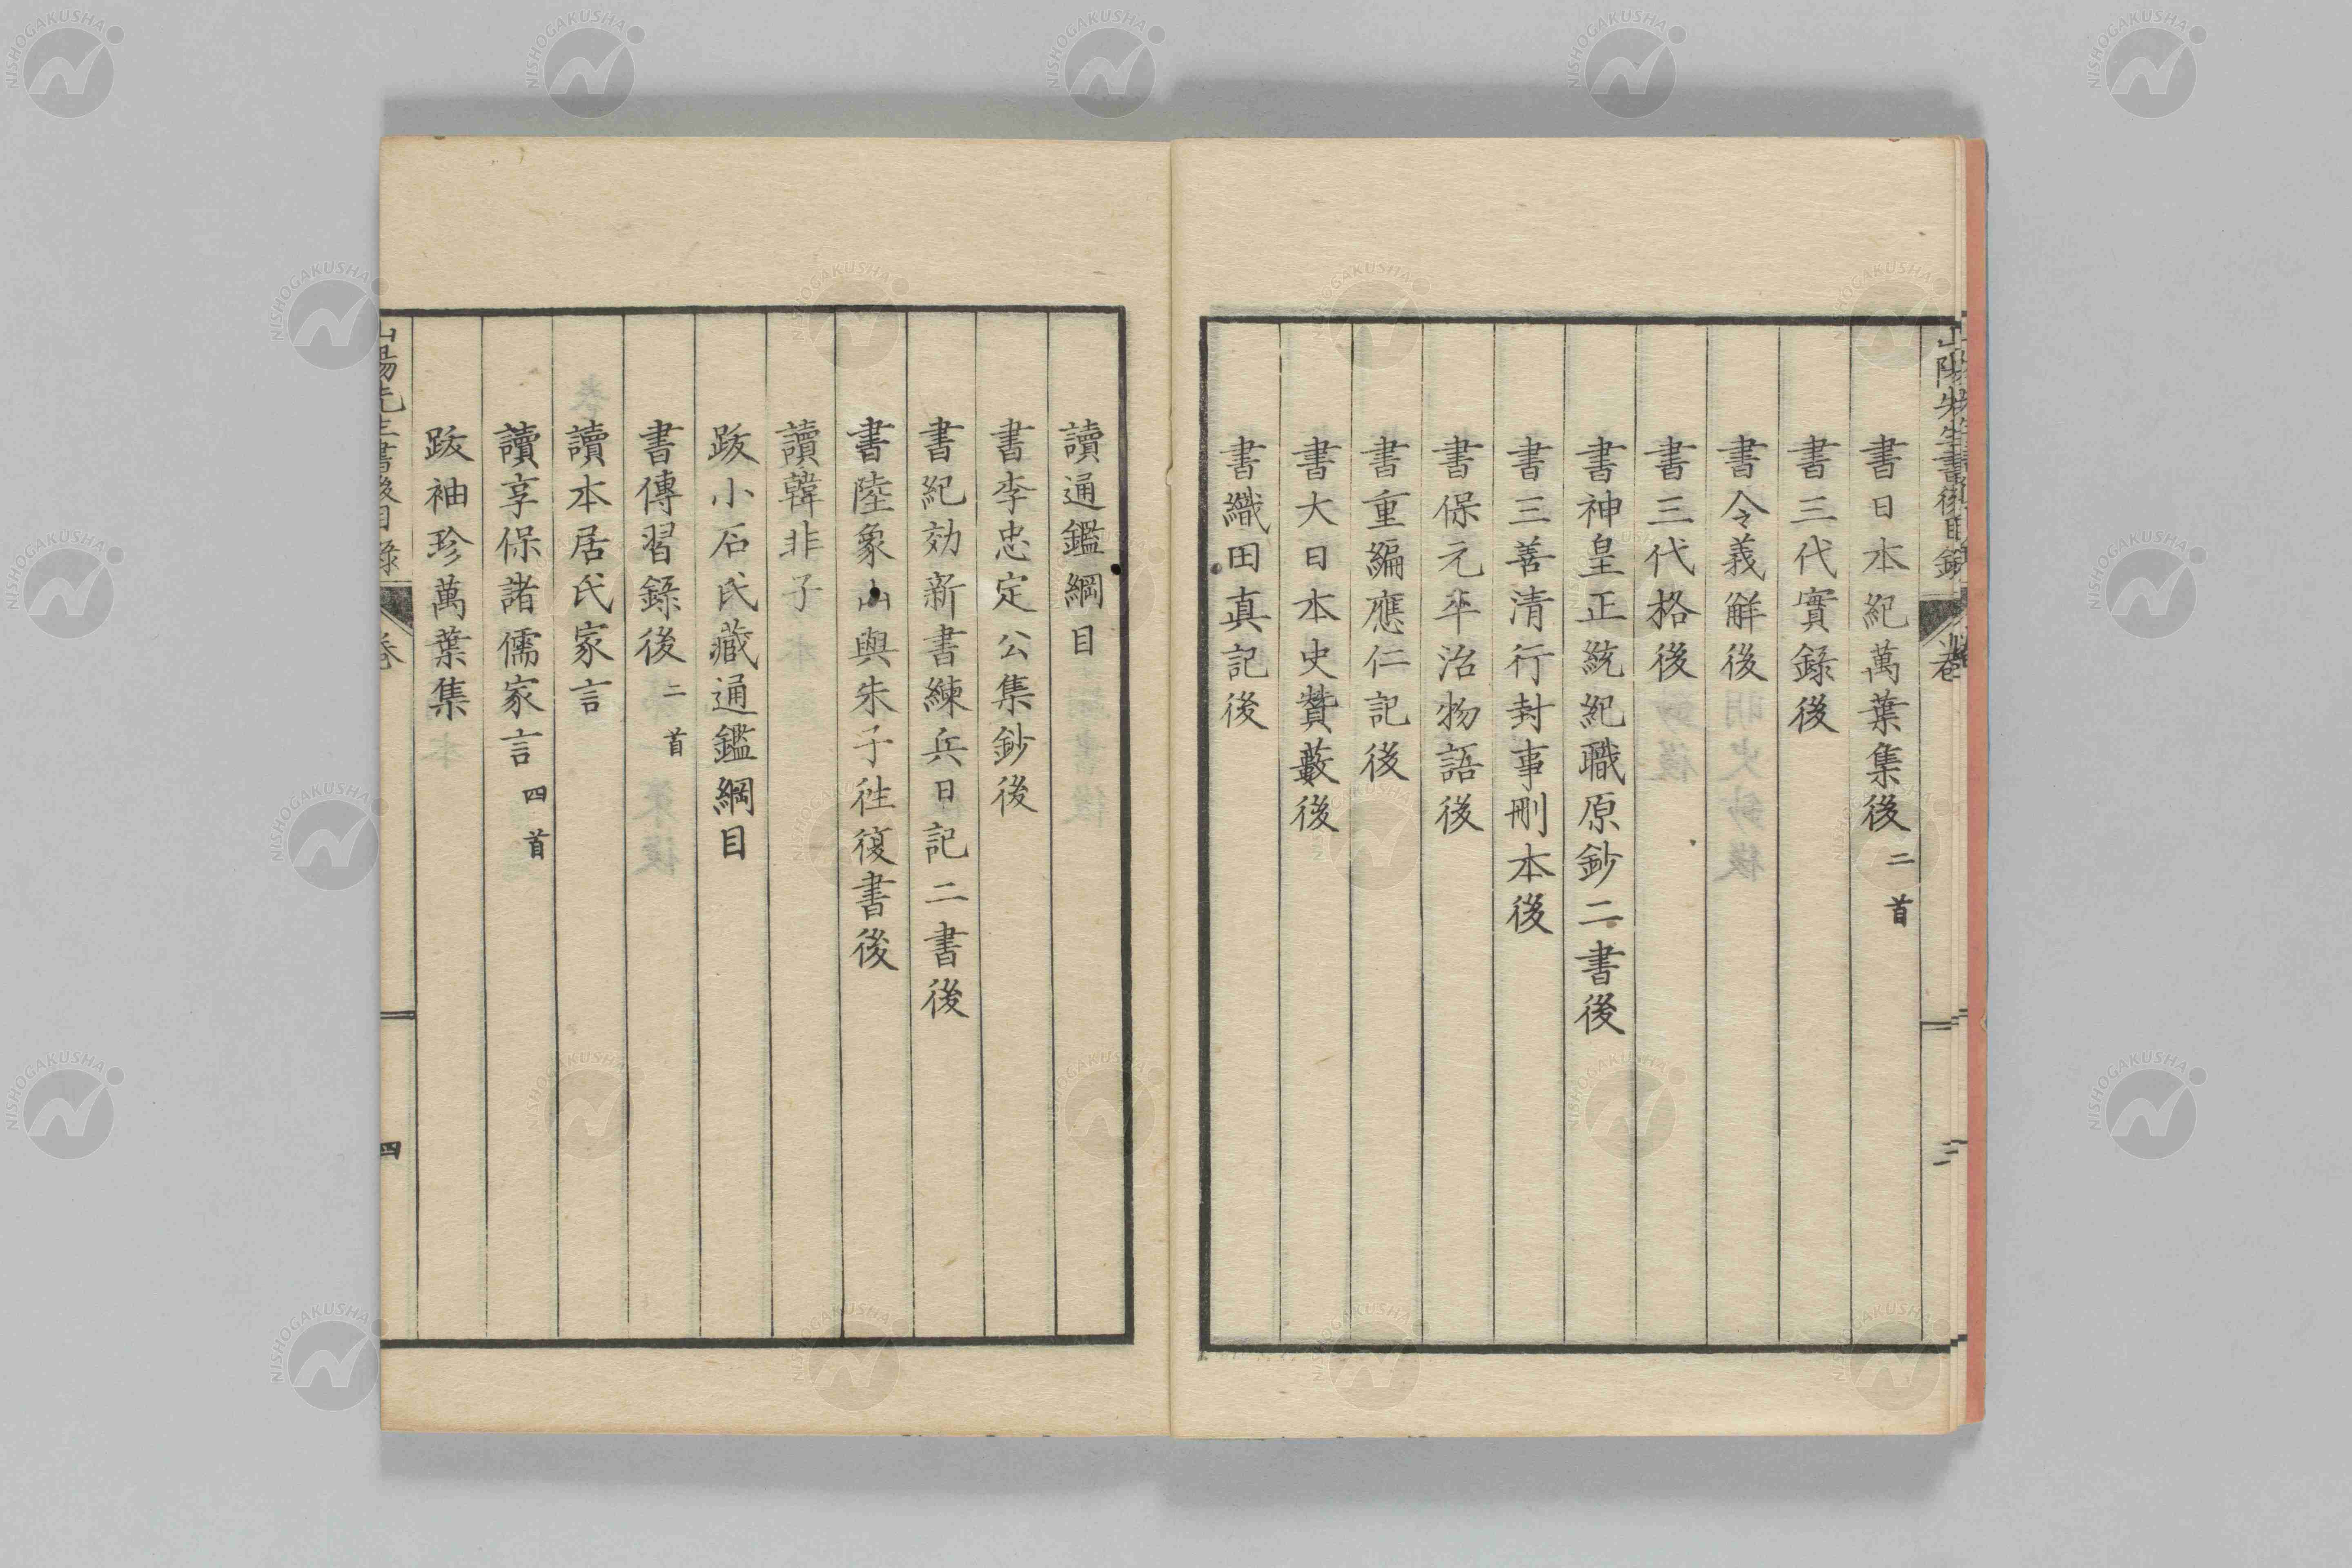 書日本紀萬葉集後二首
書三代實錄後
書令義解後
書三代格後
書神皇正統紀職原鈔二書後
書三善清行封事刪本後
書保元平治物語後
書重編應仁記後
書大日本史贊藪後
書織田真記後
讀通鑑綱目
書李忠定公集鈔後
書紀効新書練兵日記二書後
書陸象山與朱子往復書後
讀韓非子
跋小石氏藏通鑑綱目
書傳習錄後二首
讀本居氏家言
讀享保諸儒家言四首
跋袖珍萬葉集
山陽先生書後目錄
卷
四
NISHOGAKUSHA